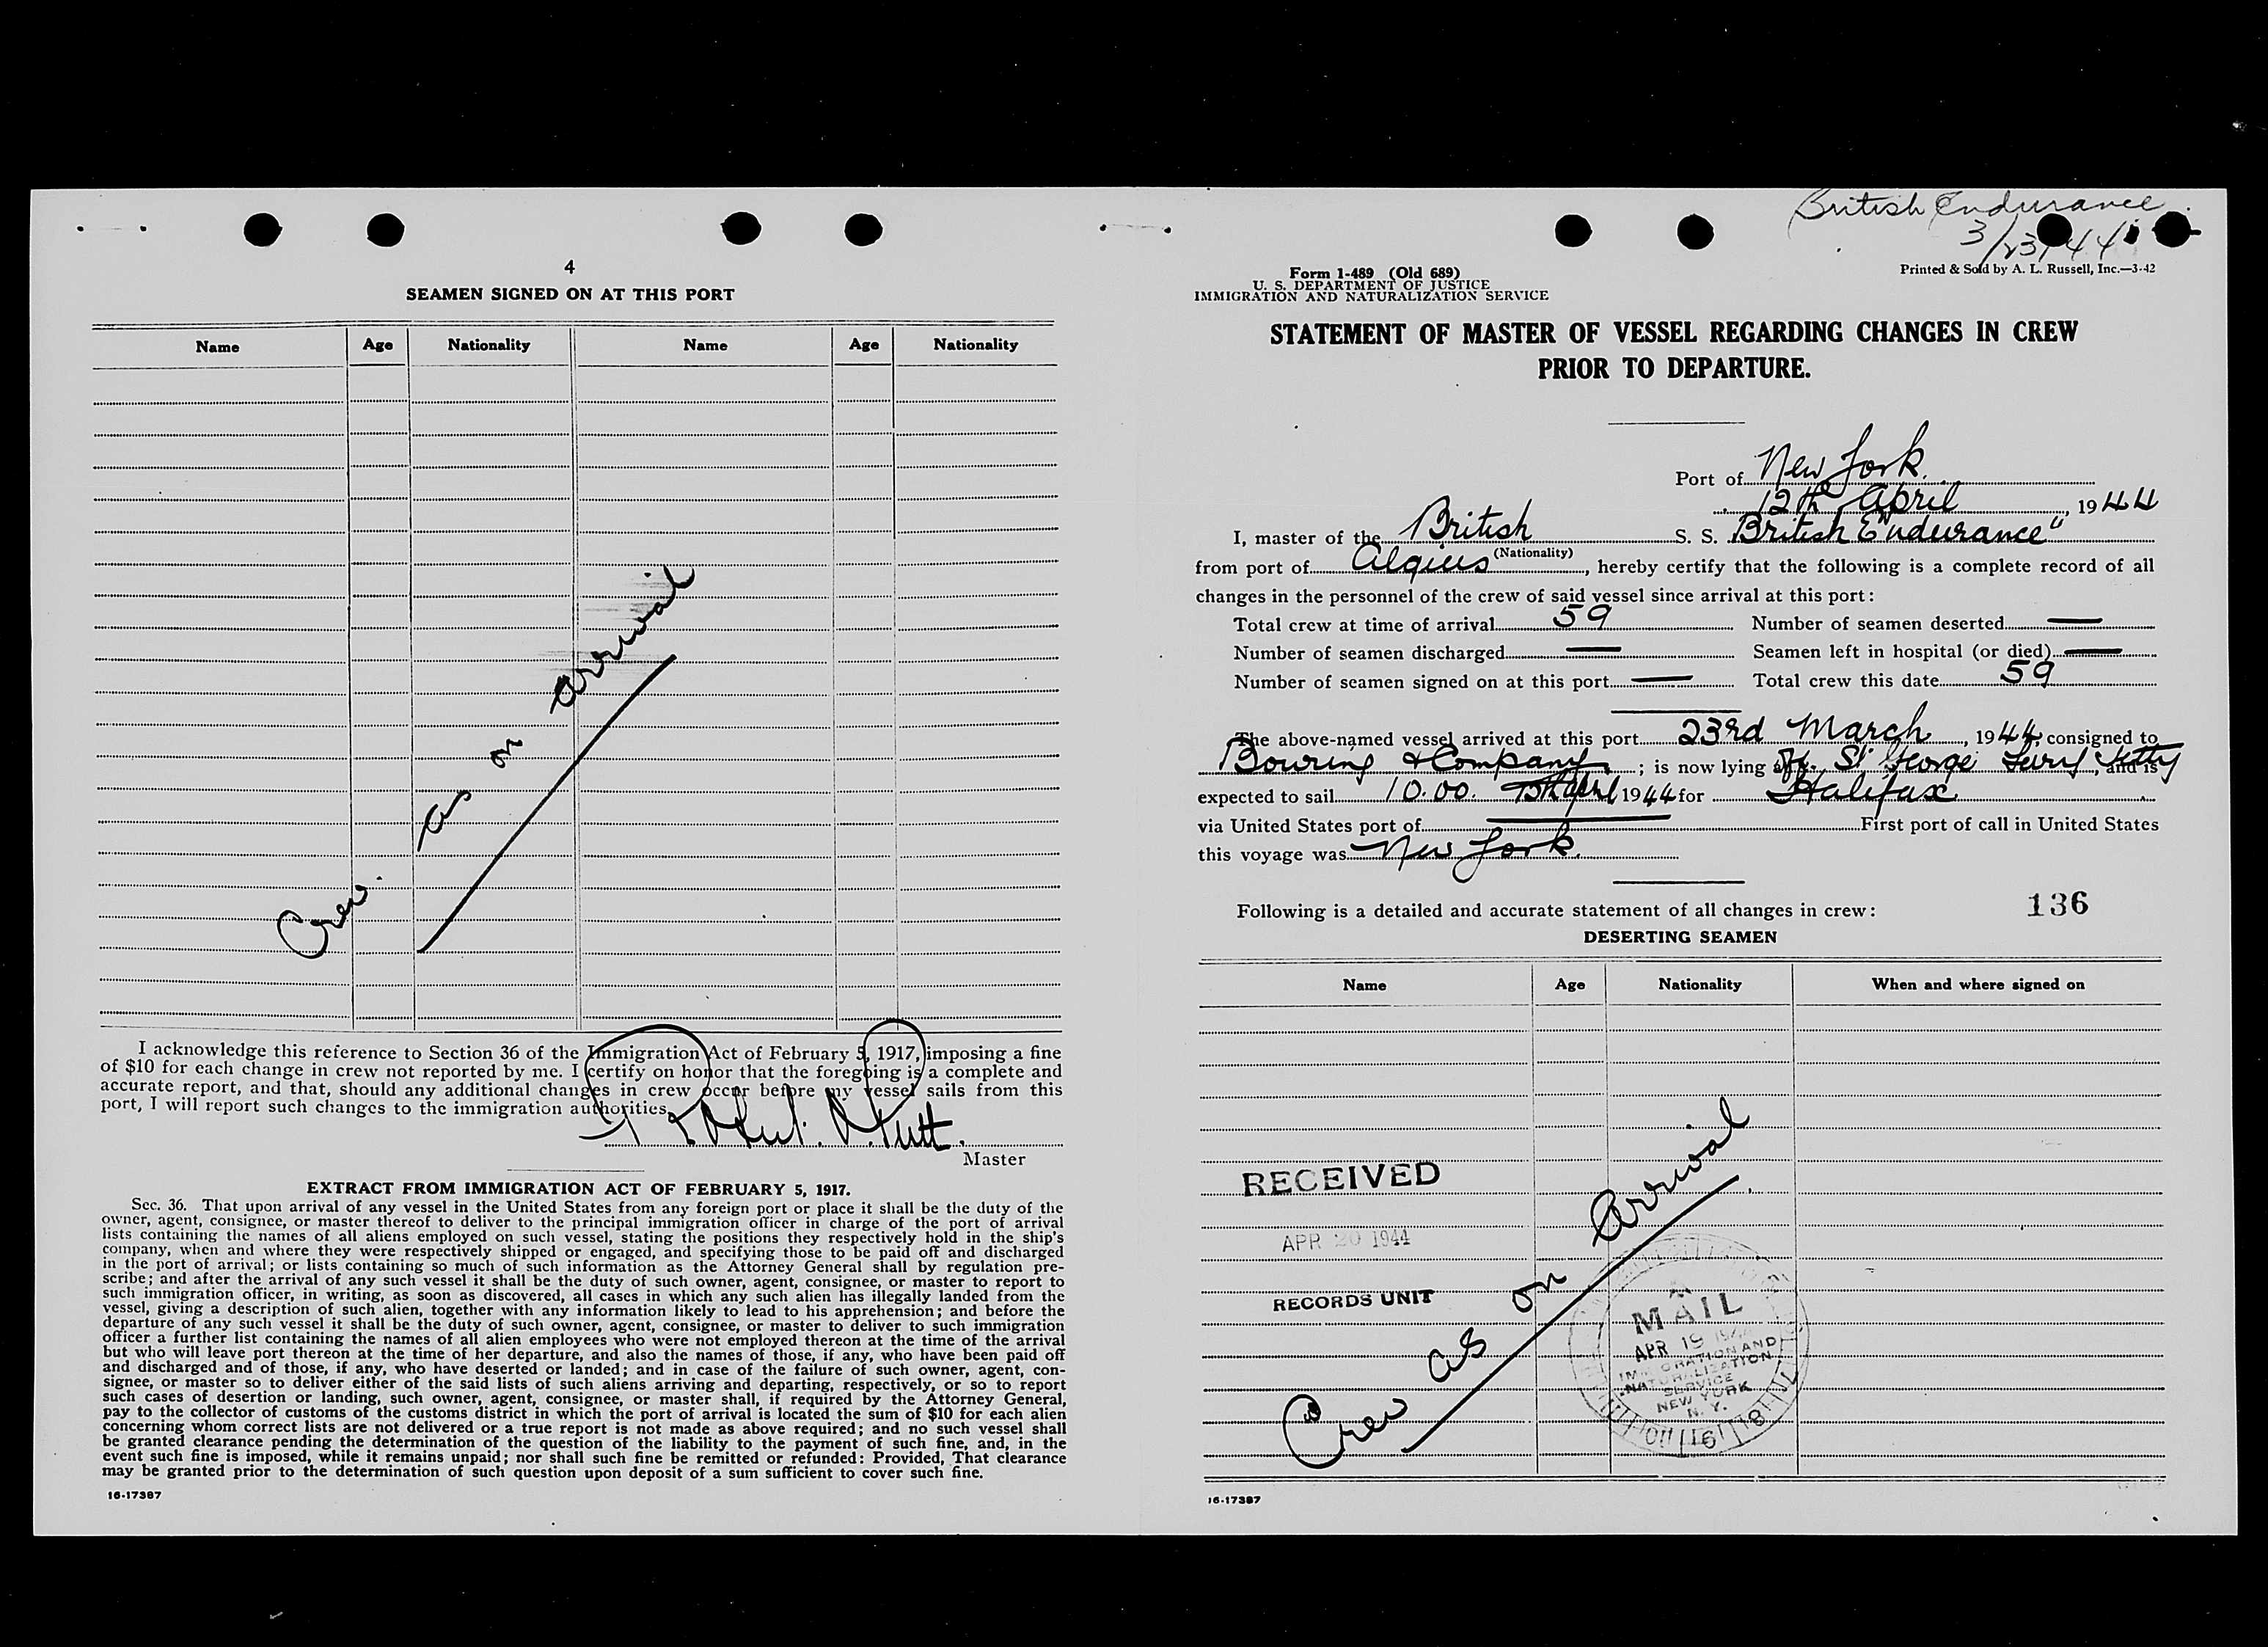 4
SEAMEN SIGNED ON AT THIS PORT
Name Age Nationality Name Age Nationality
Crew. as on arrival
I acknowledge this reference to Section 36 of the Immigration Act of February 5, 1917, imposing a fine
of $10 for each change in crew not reported by me. I certify on honor that the foregoing is a complete and
accurate report, and that, should any additional changes in crew occur before my vessel sails from this
port, I will report such changes to the immigration authorities.
Master
EXTRACT FROM IMMIGRATION ACT OF FEBRUARY 5, 1917.
Sec. 36. That upon arrival of any vessel in the United States from any foreign port or place it shall be the duty of the
owner, agent, consignee, or master thereof to deliver to the principal immigration officer in charge of the port of arrival
lists containing the names of all aliens employed on such vessel, stating the positions they respectively hold in the ship's
company, when and where they were respectively shipped or engaged, and specifying those to be paid off and discharged
in the port of arrival; or lists containing so much of such information as the Attorney General shall by regulation pre-
scribe; and after the arrival of any such vessel it shall be the duty of such owner, agent, consignee, or master to report to
such immigration officer, in writing, as soon as discovered, all cases in which any such alien has illegally landed from the
vessel, giving a description of such alien, together with any information likely to lead to his apprehension; and before the
departure of any such vessel it shall be the duty of such owner, agent, consignee, or master to deliver to such immigration
officer a further list containing the names of all alien employees who were not employed thereon at the time of the arrival
but who will leave port thereon at the time of her departure, and also the names of those, if any, who have been paid off
and discharged and of those, if any, who have deserted or landed; and in case of the failure of such owner, agent, con-
signee, or master so to deliver either of the said lists of such aliens arriving and departing, respectively, or so to report
such cases of desertion or landing, such owner, agent, consignee, or master shall, if required by the Attorney General,
pay to the collector of customs of the customs district in which the port of arrival is located the sum of $10 for each alien
concerning whom correct lists are not delivered or a true report is not made as above required; and no such vessel shall
be granted clearance pending the determination of the question of the liability to the payment of such fine, and, in the
event such fine is imposed, while it remains unpaid; nor shall such fine be remitted or refunded: Provided, That clearance
may be granted prior to the determination of such question upon deposit of a sum sufficient to cover such fine.
16-17387
British Endurance
3/23/44
Form 1-489 (Old 689)
U. S. DEPARTMENT OF JUSTICE
IMMIGRATION AND NATURALIZATION SERVICE
Printed & Sold by A. L. Russell, Inc.—3-42
STATEMENT OF MASTER OF VESSEL REGARDING CHANGES IN CREW
PRIOR TO DEPARTURE.
Port of New York.
12th April, 1944
I, master of the British S. S. British Endurance"
(Nationality)
from port of Algiers, hereby certify that the following is a complete record of all
changes in the personnel of the crew of said vessel since arrival at this port:
Total crew at time of arrival 59 Number of seamen deserted —
Number of seamen discharged — Seamen left in hospital (or died) —
Number of seamen signed on at this port — Total crew this date 59
The above-named vessel arrived at this port 23rd March, 1944, consigned to
Bouring & Company; is now lying St George Jetty, and is
expected to sail 10.00. April 1944 for Halifax
via United States port of First port of call in United States
this voyage was New York.
Following is a detailed and accurate statement of all changes in crew: 136
DESERTING SEAMEN
Name Age Nationality When and where signed on
Crew as on arrival
RECEIVED
APR 20 1944
RECORDS UNIT
MAIL
APR 19
IMMIGRATION AND
NATURALIZATION
SERVICE
NEW YORK
N. Y.
16-17387